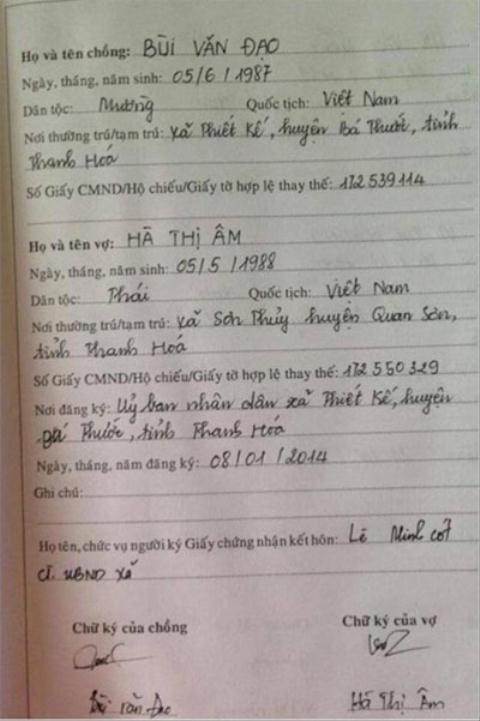 Họ và tên chồng: BÙI VĂN ĐẠO
Ngày, tháng, năm sinh: 05/6/1987
Dân tộc: Mường Quốc tịch: Việt Nam
Nơi thường trú/tạm trú: xã Thiết Kế, huyện Bá Thước, tỉnh
Thanh Hoá
Số Giấy CMND/Hộ chiếu/Giấy tờ hợp lệ thay thế: 172539114
Họ và tên vợ: HÀ THỊ ÂM
Ngày, tháng, năm sinh: 05/5/1988
Dân tộc: Thái Quốc tịch: Việt Nam
Nơi thường trú/tạm trú: xã Sơn Thủy huyện Quan Sơn,
tỉnh Thanh Hoá
Số Giấy CMND/Hộ chiếu/Giấy tờ hợp lệ thay thế: 172550329
Nơi đăng ký: Uỷ ban nhân dân xã Thiết Kế, huyện
Bá Thước, tỉnh Thanh Hóa
Ngày, tháng, năm đăng ký: 08/01/2014
Ghi chú:
Họ tên, chức vụ người ký Giấy chứng nhận kết hôn: Lê Minh
CT. UBND xã
Chữ ký của chồng Chữ ký của vợ
Bùi Văn Đạo Hà Thị Âm